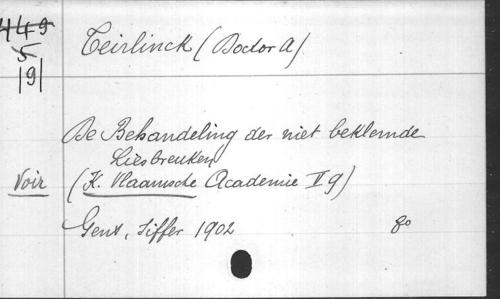 449
5
191
Teirlinck (Doctor A)
De Behandeling der niet beklemde
Liesbreuken
Voir (K. Vlaamsche Academie II 9)
Gent, Siffer 1902 8o